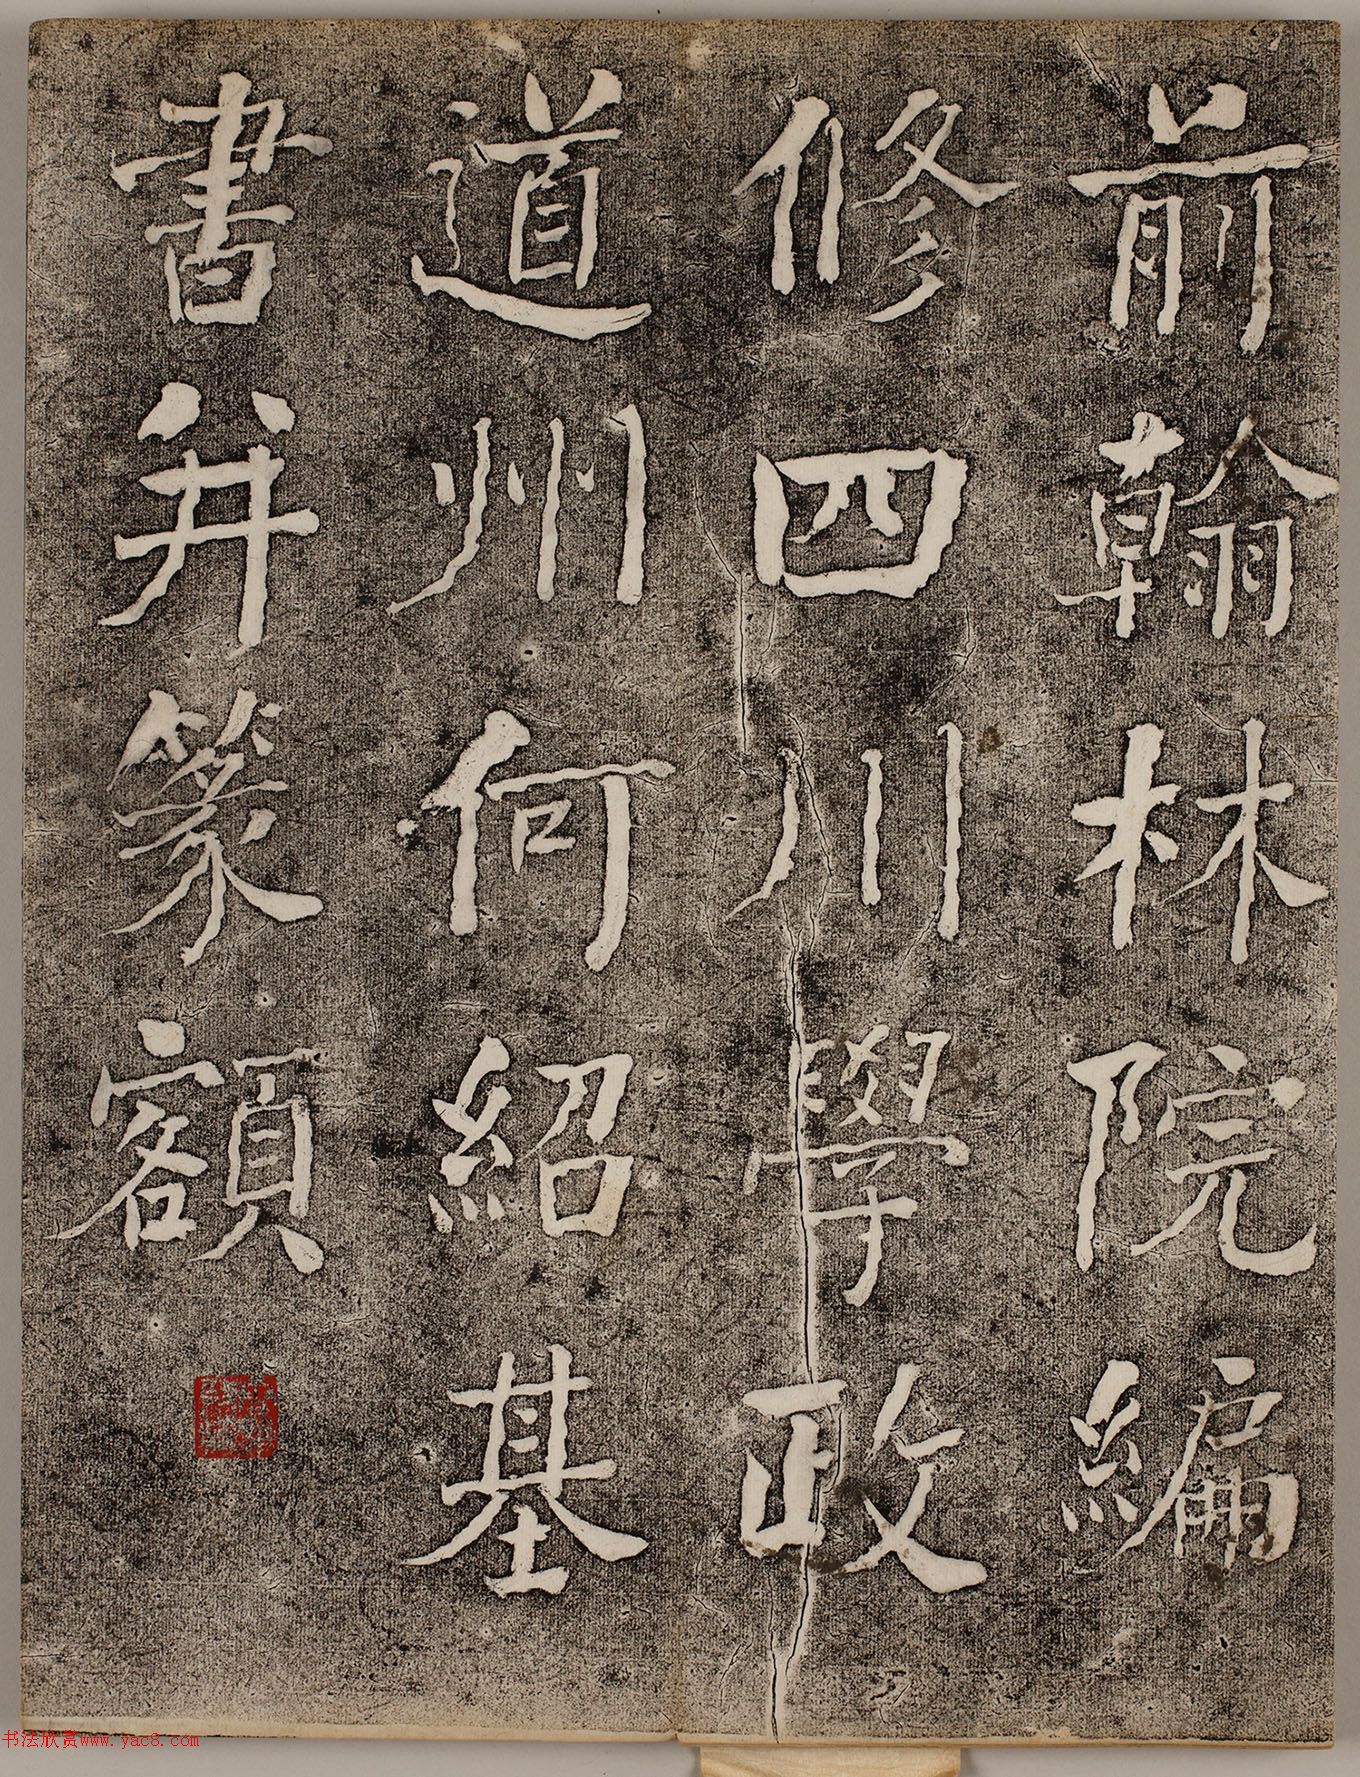 前翰林院編
修四川學政
道州何紹基
書并篆額
书法欣赏www.yac8.com